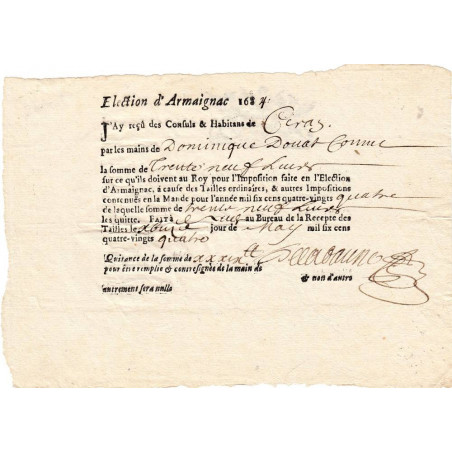 Election d'Armaignac 1684.
J'Ay reçû des Consuls & Habitans de Ceran
par les mains de Dominique Douat
la somme de Trente neuf Livres
sur ce qu'ils doivent au Roy pour l'Imposition faite en l'Election
d'Armaignac, à cause des Tailles ordinaires, & autres Impositions
contenuës en la Mande pour l'année mil six cens quatre-vingts quatre
de laquelle somme de trente neuf Livres
les quitte. FAIT à au Bureau de la Recepte des
Tailles le jour de May mil six cens
quatre-vingts quatre
Quitance de la somme de xxxix tt
pour être remplie & contresignée de la main de & non d'autre
autrement sera nulle